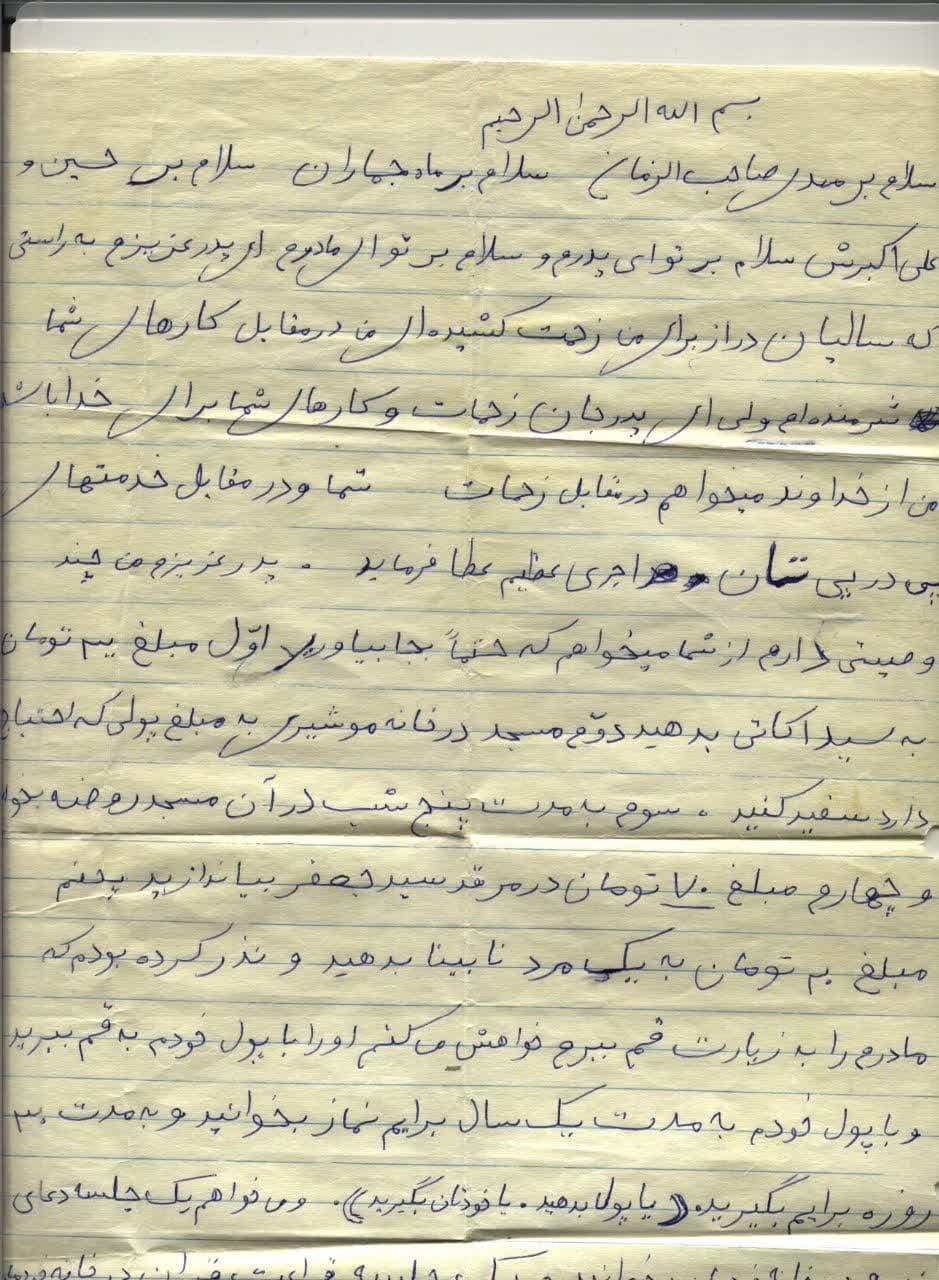 بسم الله الرحمن الرحیم
سلام بر مهدی صاحب الزمان سلام بر ماه جماران سلام بر حسین و
علی اکبرش سلام بر تو ای پدرم و سلام بر تو ای مادرم ای پدر عزیزم به راستی
که سالیان دراز برای من زحمت کشیده‌ای من در مقابل کارهای شما
شرمنده‌ام ولی ای پدر جان زحمات و کارهای شما برای خدا باشد
من از خداوند میخواهم در مقابل زحمات شما و در مقابل خدمتهای
پی در پی تان اجری عظیم عطا فرماید . پدر عزیزم من چند
وصیتی دارم از شما میخواهم که حتماً بجا بیاورید اوّل مبلغ تومان
به سید بدهید دوّم مسجد در خانه به مبلغ پولی که احتیاج
دارد سفید کنید . سوم به مدت پنج شب در آن مسجد روضه
و چهارم مبلغ ۷۰ تومان در مرقد سید جعفر بیاندازید پنجم
مبلغ تومان به یک مرد نابینا بدهید و نذر کرده بودم که
مادرم را به زیارت قم ببرم خواهش می کنم او را با پول خودم به قم ببرید
و با پول خودم به مدت یک سال برایم نماز بخوانید و به مدت
روزه برایم بگیرید. (( یا پول بدهید . یا خودتان بگیرید )) . و می خواهم یک جلسه دعای